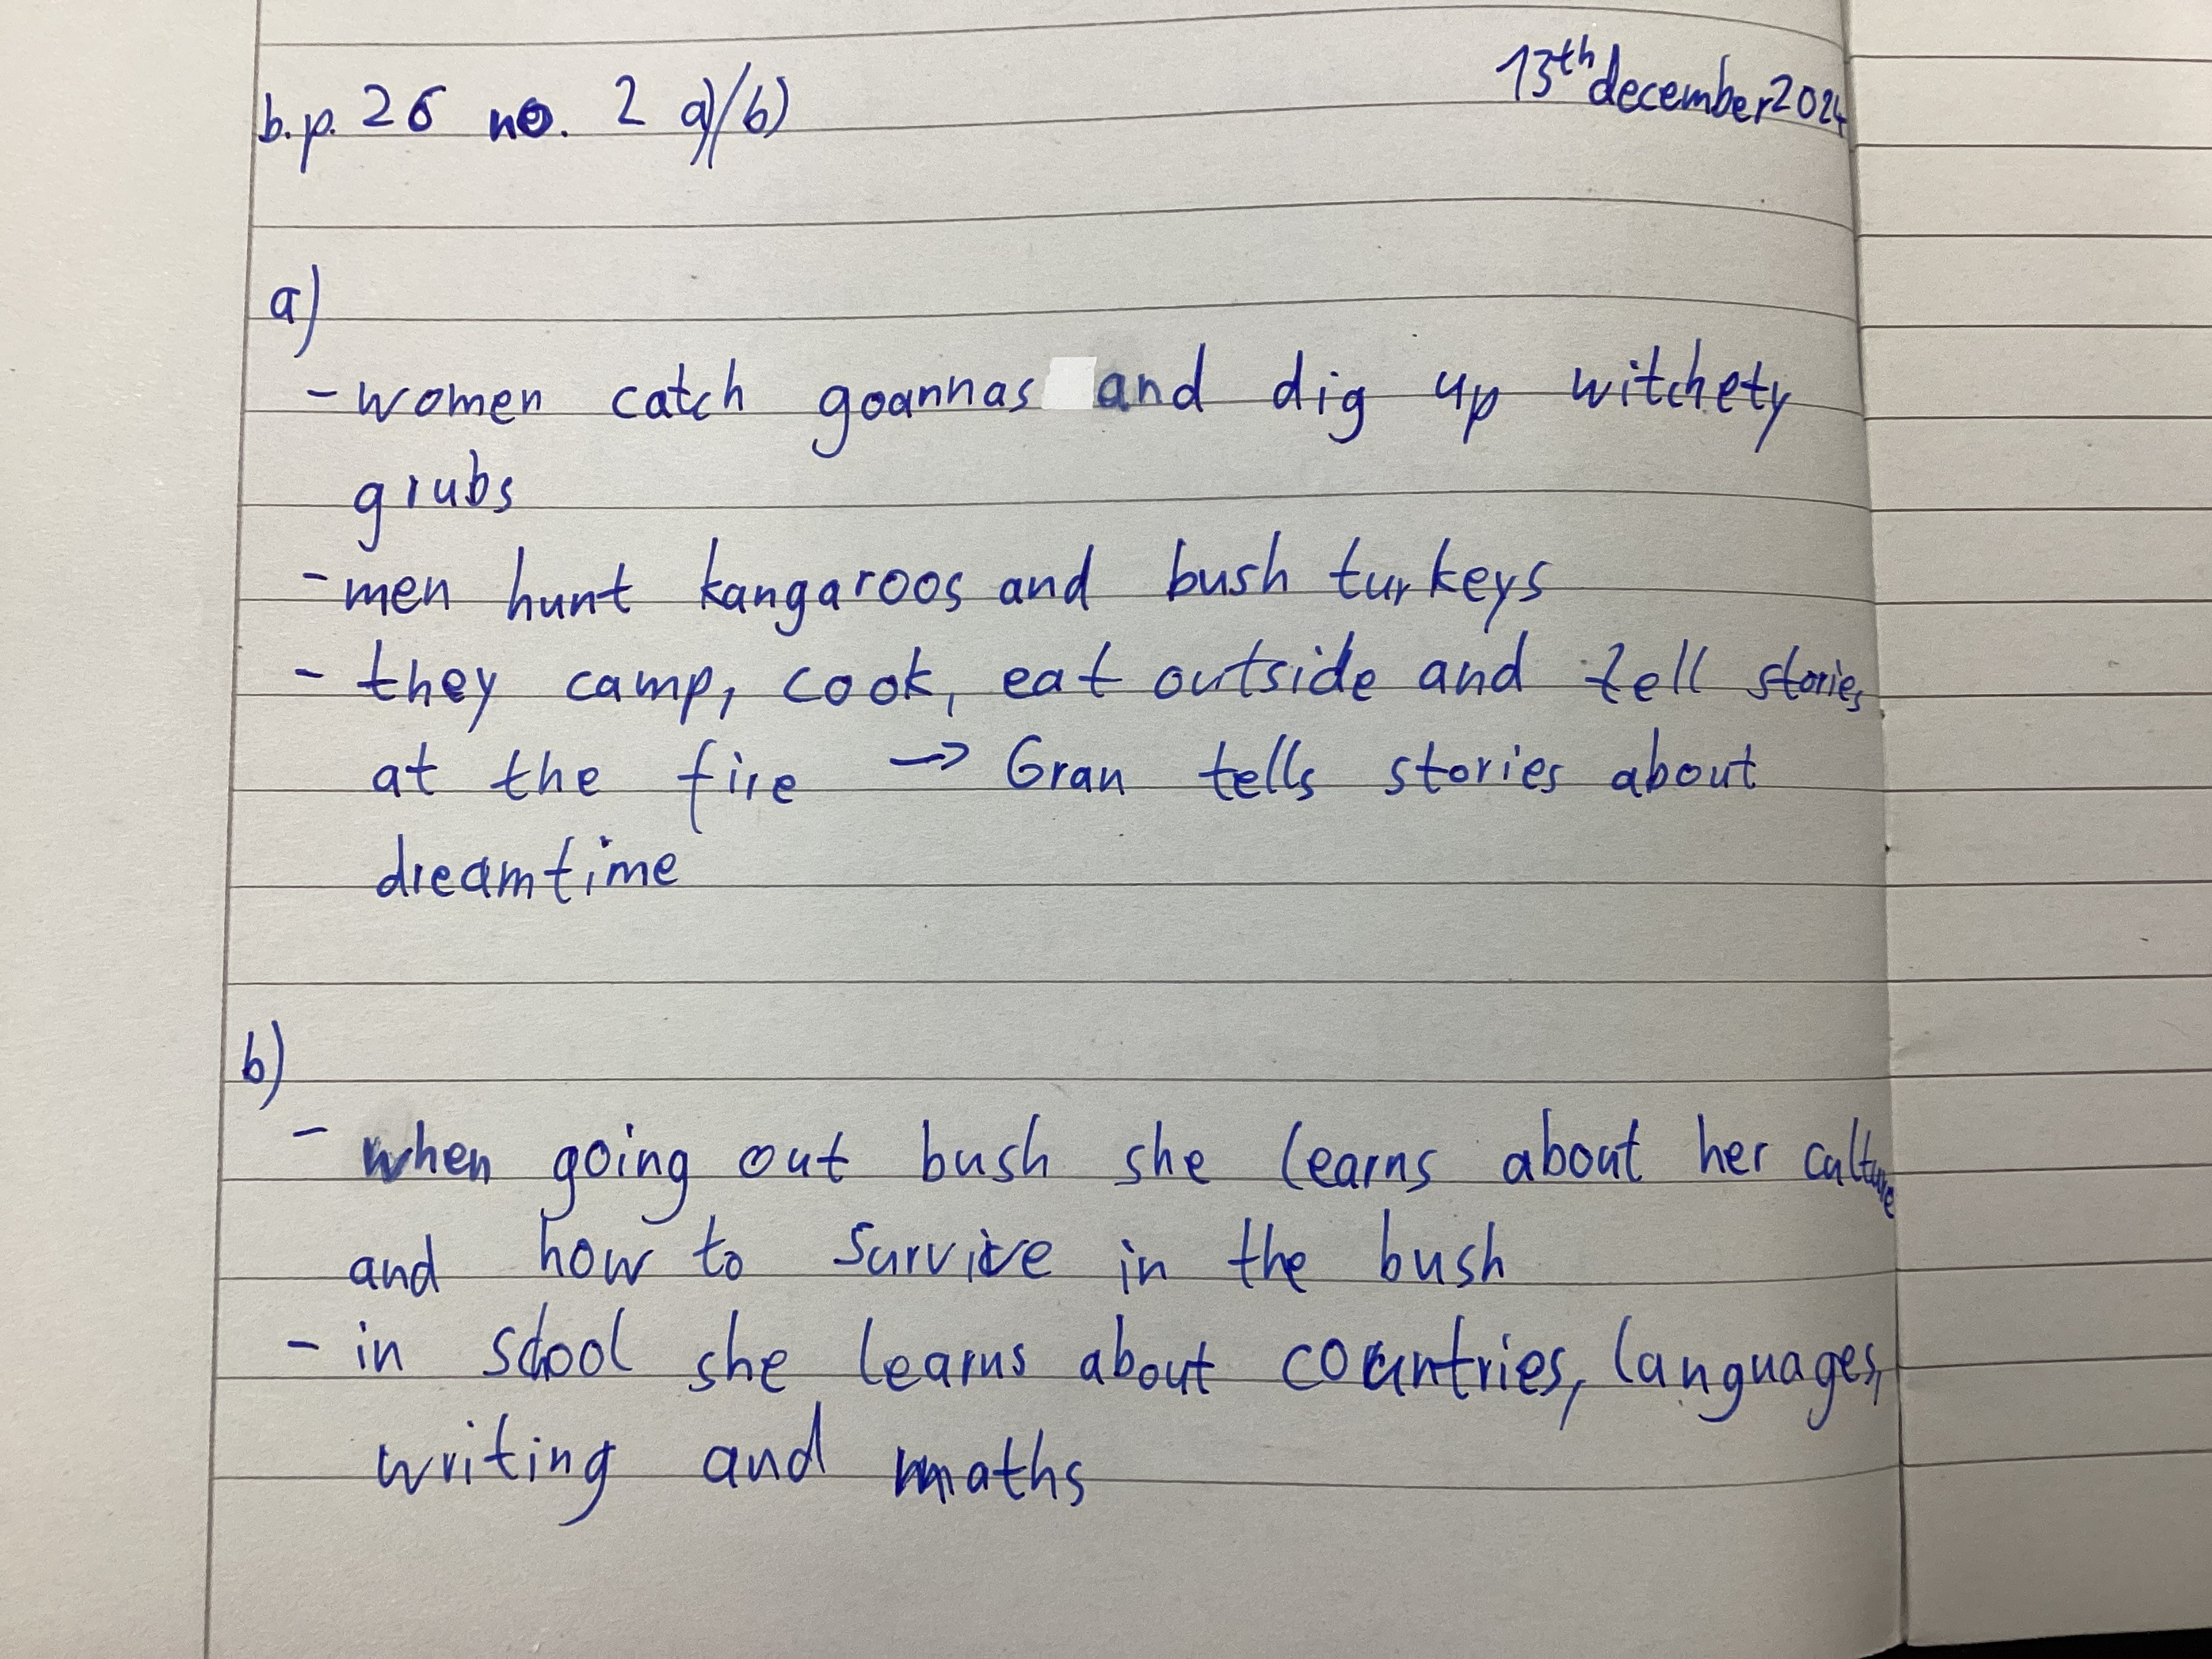 b.p. 26 no. 2 a)/b)
13th december 2024
a)
- women catch goannas and dig up witchety
grubs
- men hunt kangaroos and bush turkeys
- they camp, cook, eat outside and tell stories
at the fire → Gran tells stories about
dreamtime
b)
- when going out bush she learns about her culture
and how to survive in the bush
- in school she learns about countries, languages,
writing and maths